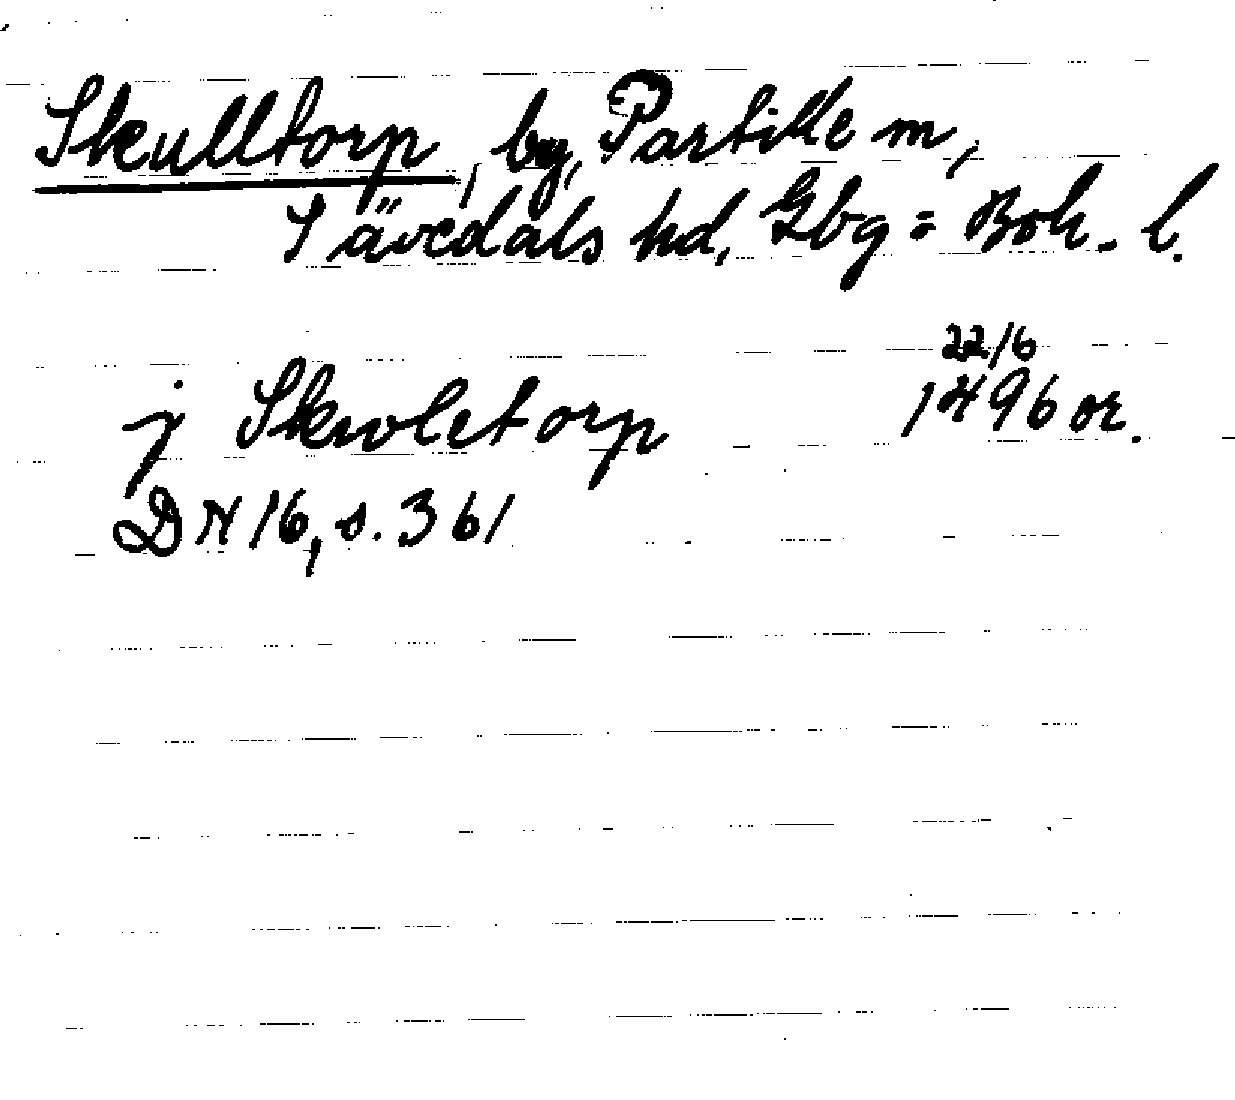 Skulltorp, by, Partille sn,
Sävedals hd, Gbg = Boh. l.
22/6
j Skwletorp 1496 or.
DN 16, s. 361